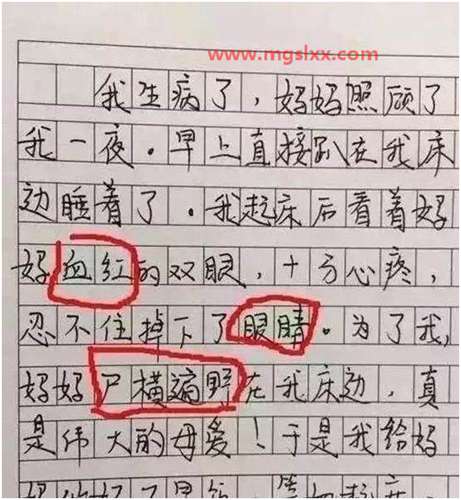 www.mgslxx.com
我生病了，妈妈照顾了
我一夜。早上直接趴在我床
边睡着了。我起床后看着妈
妈血红的双眼，十分心疼，
忍不住掉下了眼睛。为了我，
妈妈尸横遍野在我床边，真
是伟大的母爱！于是我给妈